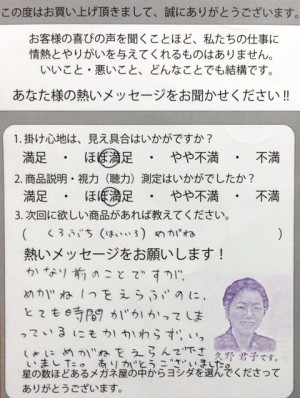 この度はお買い上げ頂きまして、誠にありがとうございます。
お客様の喜びの声を聞くことほど、私たちの仕事に
情熱とやりがいを与えてくれるものはありません。
いいこと・悪いこと、どんなことでも結構です。
あなた様の熱いメッセージをお聞かせください!!
1. 掛け心地は、見え具合はいかがですか?
満足 ・ ほぼ満足 ・ やや不満 ・ 不満
2. 商品説明・視力(聴力)測定はいかがでしたか?
満足 ・ ほぼ満足 ・ やや不満 ・ 不満
3. 次回に欲しい商品があれば教えてください。
( くろぶち(はいいろ)めがね )
熱いメッセージをお願いします!
かなり前のことですが、
めがね1つをえらぶのに、
とても時間がかかってしま
っているにもかかわらず、いっ
しょにめがねをえらんで下さ
いました。ありがとうございました。
久野 君子です。
星の数ほどあるメガネ屋の中からヨシダを選んでくださって
ありがとうございます。